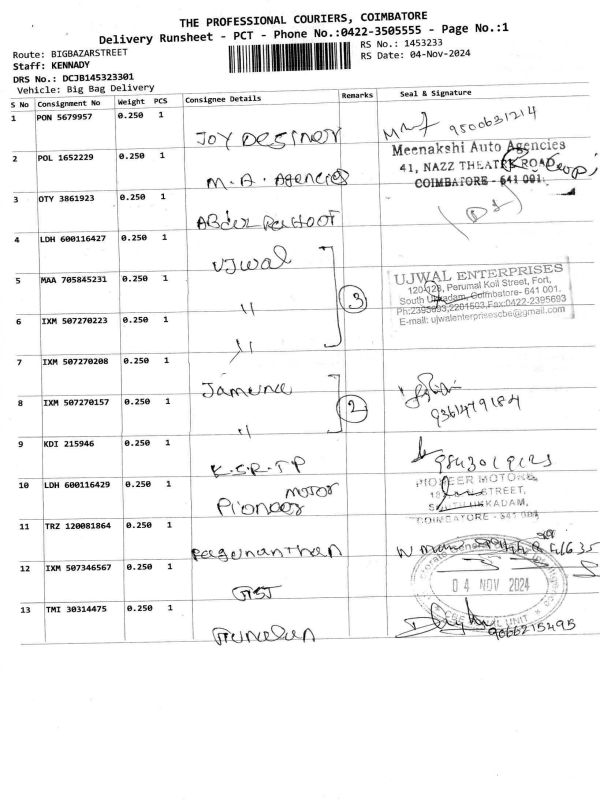 THE PROFESSIONAL COURIERS, COIMBATORE
Delivery Runsheet - PCT - Phone No.:0422-3505555 - Page No.:1
Route: BIGBAZARSTREET
RS No.: 1453233
Staff: KENNADY
RS Date: 04-Nov-2024
DRS No.: DCJB145323301
Vehicle: Big Bag Delivery
S No Consignment No Weight PCS Consignee Details Remarks Seal & Signature
1 PON 5679957 0.250 1 JOY DESINER 9500631214
Meenakshi Auto Agencies
2 POL 1652229 0.250 1 M.A. Agencies 41, NAZZ THEATRE ROAD,
COIMBATORE - 641 001.
3 OTY 3861923 0.250 1
4 LDH 600116427 0.250 1 UJwal
5 MAA 705845231 0.250 1 " 3 UJWAL ENTERPRISES
120-128, Perumal Koil Street, Fort,
South Ukkadam, Coimbatore- 641 001.
Ph:2395693,2201593,Fax:0422-2395693
E-mail: ujwalenterprisescbe@gmail.com
6 IXM 507270223 0.250 1 "
7 IXM 507270208 0.250 1 Jamuna
8 IXM 507270157 0.250 1 " 2 9361479184
9 KDI 215946 0.250 1 K.S.R.TP
10 LDH 600116429 0.250 1 Pioneer motor PIONEER MOTORS
STREET,
SOUTH UKKADAM,
COIMBATORE - 641 001
11 TRZ 120081864 0.250 1 Ragunanthan
12 IXM 507346567 0.250 1 GST 04 NOV 2024
13 TMI 30314475 0.250 1 Gunalan 9066215495